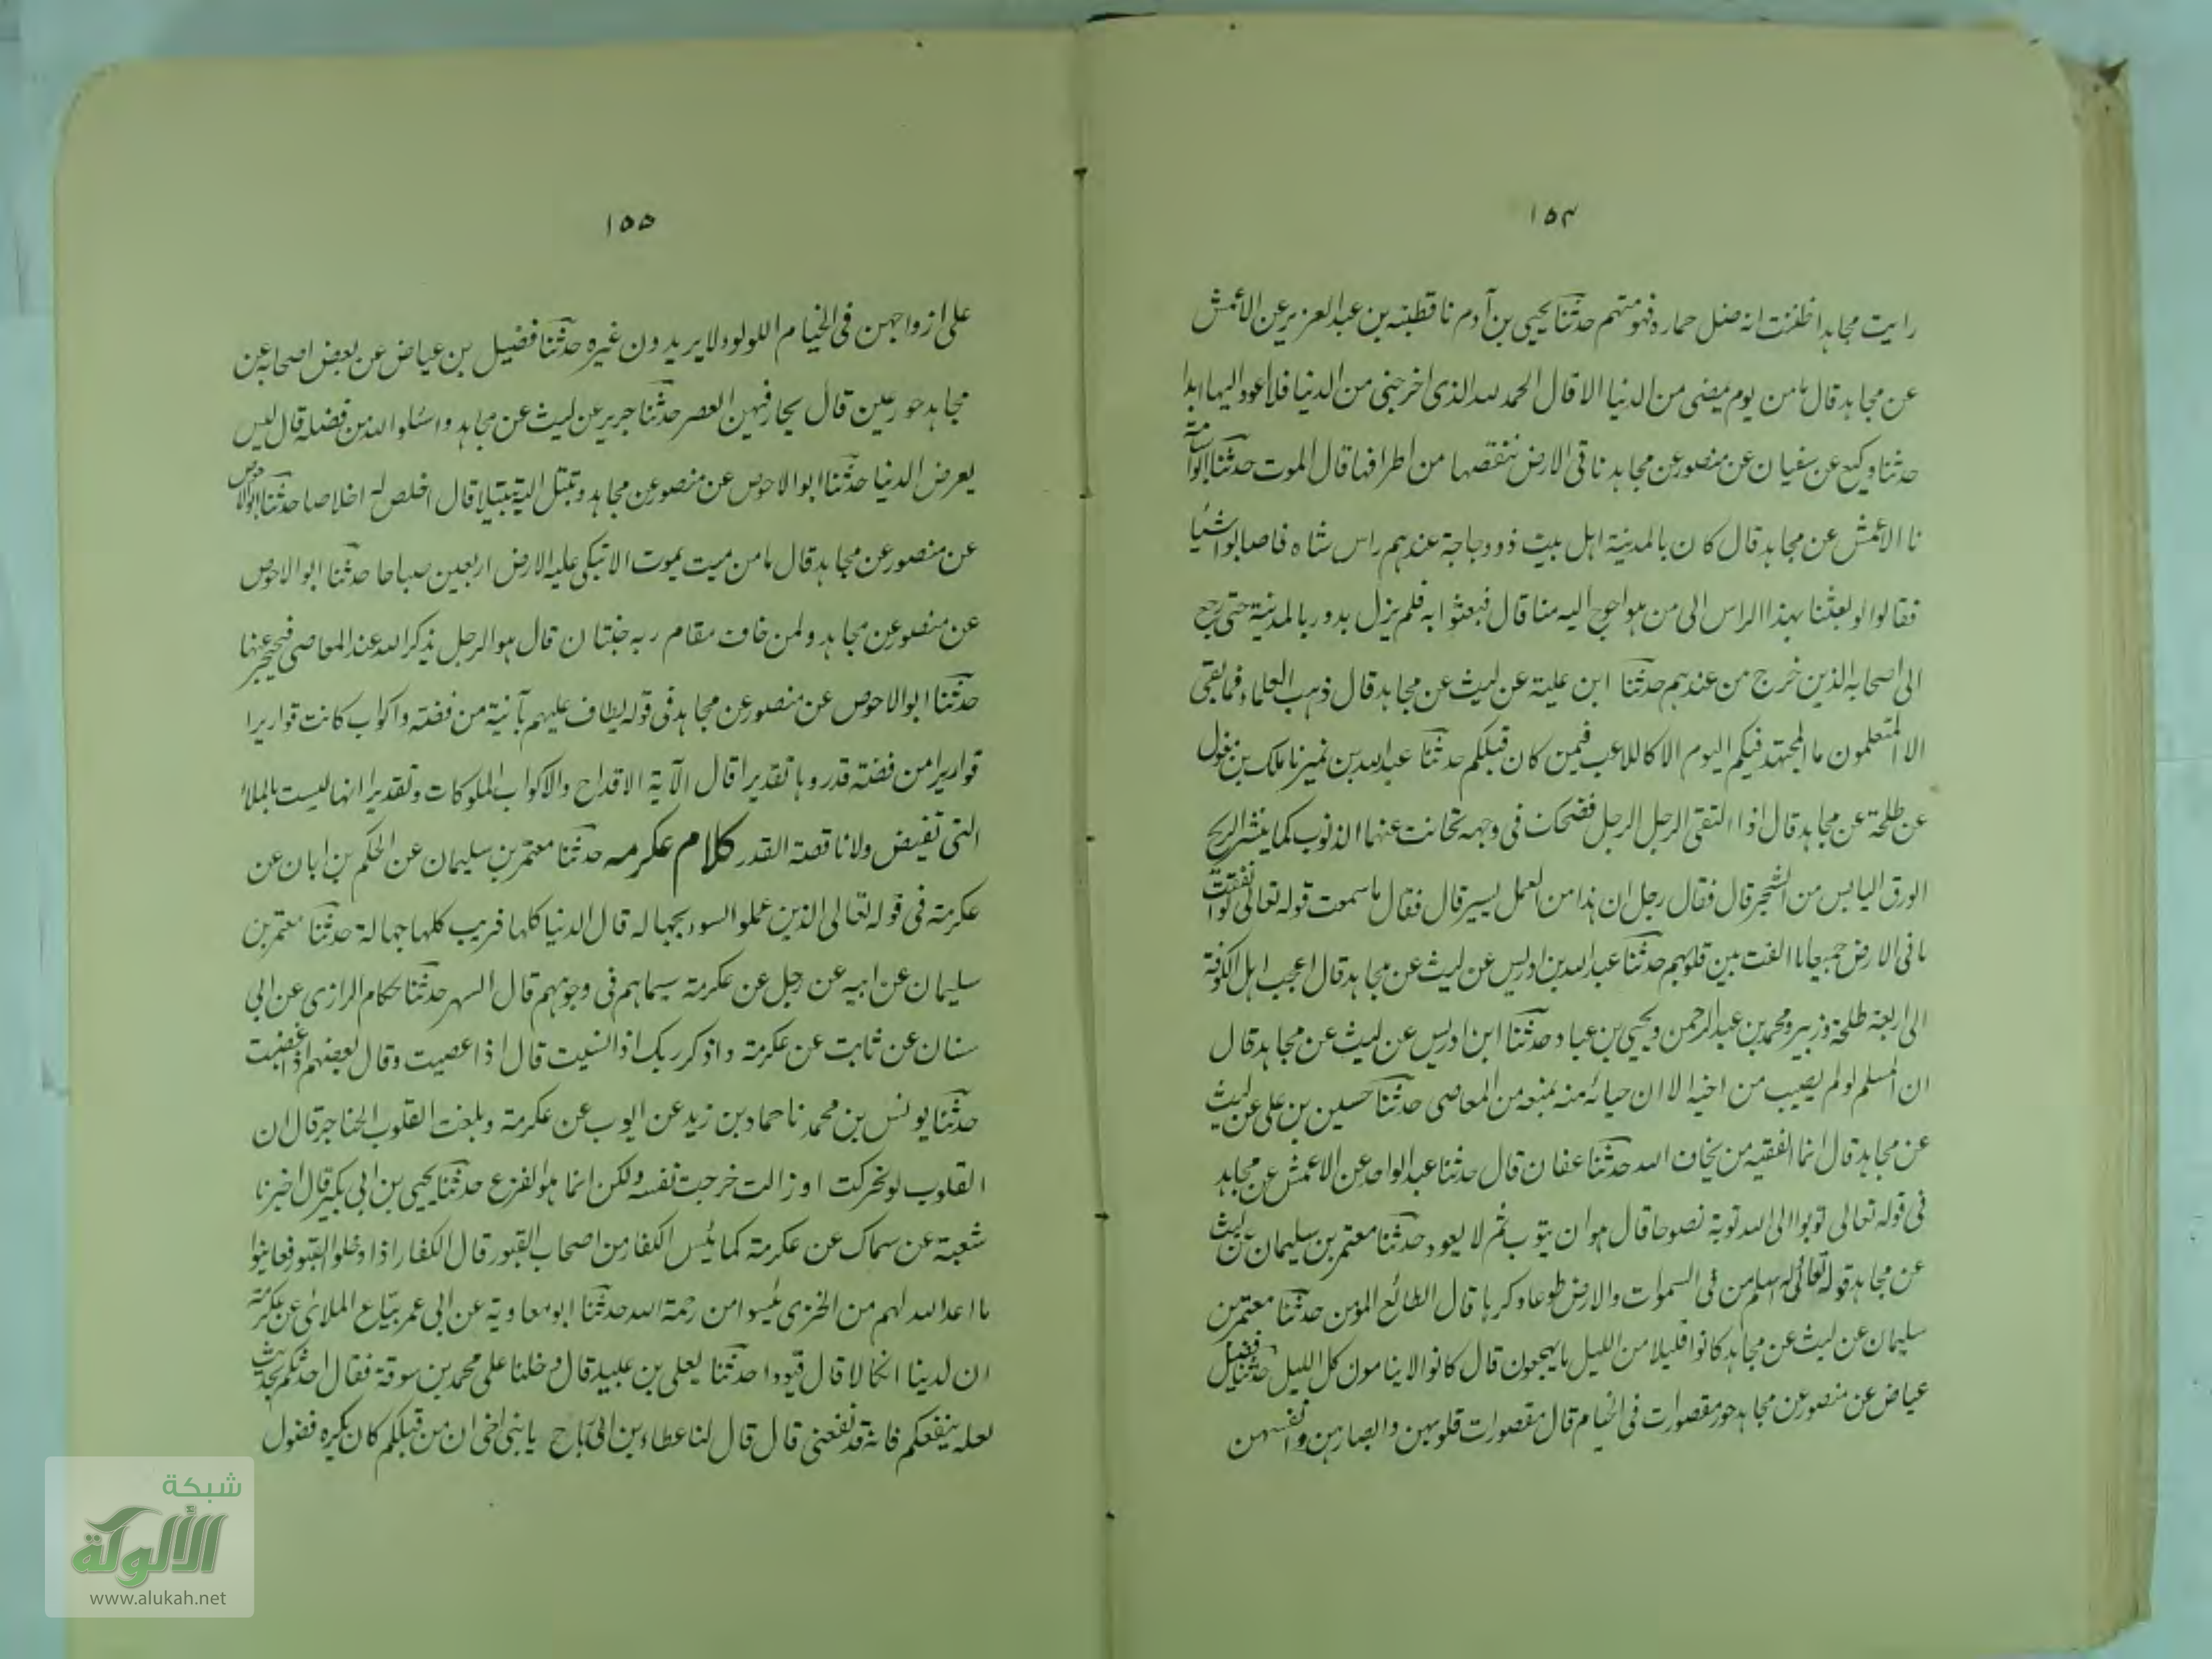 ١٥٤
رايت مجاهدا ظننت انه ضل حماره فهو متهم حدثنا يحيى بن آدم نا قطبة بن عبد العزيز عن الأعمش
عن مجاهد قال ما من يوم يمضى من الدنيا الا قال الحمد لله الذى اخرجنى من الدنيا فلا اعود اليها ابدا
حدثنا وكيع عن سفيان عن منصور عن مجاهد ناتى الارض ننقصها من اطرافها قال الموت حدثنا ابو اسامة
نا الأعمش عن مجاهد قال كان بالمدينة اهل بيت ذوو حاجة عندهم راس شاه فاصابوا شيأ
فقالوا لو بعثنا بهذا الراس الى من هو احوج اليه منا قال فبعثوا به فلم يزل يدور بالمدينة حتى رجع
الى اصحابه الذين خرج من عندهم حدثنا ابن علية عن ليث عن مجاهد قال ذهب العلماء فما بقى
الا المتعلمون ما المجتهد فيكم اليوم الا كاللاعب فيمن كان قبلكم حدثنا عبد الله بن نمير نا مالك بن مغول
عن طلحة عن مجاهد قال اذا التقى الرجل الرجل فضحك فى وجهه تحاتت عنهما الذنوب كما ينثر الريح
الورق اليابس من الشجر قال فقال رجل ان هذا من العمل يسير قال فقال ما سمعت قوله تعالى لو انفقت
ما فى الارض جميعا ما الفت بين قلوبهم حدثنا عبد الله بن ادريس عن ليث عن مجاهد قال اعجب اهل الكوفة
الى اربعة طلحة وزبير ومحمد بن عبد الرحمن ويحيى بن عباد حدثنا ابن ادريس عن ليث عن مجاهد قال
ان المسلم لو لم يصيب من اخيه الا ان حيائه منه يمنعه من المعاصى حدثنا حسين بن على عن ليث
عن مجاهد قال انما الفقيه من يخاف الله حدثنا عفان قال حدثنا عبد الواحد عن الاعمش عن مجاهد
فى قوله تعالى توبوا الى الله توبة نصوحا قال هو ان يتوب ثم لا يعود حدثنا معتمر بن سليمان عن ليث
عن مجاهد قوله تعالى له اسلم من فى السموات والارض طوعا وكرها قال الطائع المؤمن حدثنا معتمر بن
سليمان عن ليث عن مجاهد كانوا قليلا من الليل ما يهجعون قال كانوا لا ينامون كل الليل حدثنا فضيل
عياض عن منصور عن مجاهد حور مقصورات فى الخيام قال مقصورات قلوبهن وابصارهن وانفسهن
١٥٥
على ازواجهن فى الخيام اللولوء لا يريدون غيره حدثنا فضيل بن عياض عن بعض اصحابه عن
مجاهد حور عين قال يحار فيهن البصر حدثنا جرير عن ليث عن مجاهد واسئلوا الله من فضله قال ليس
بعرض الدنيا حدثنا ابو الاحوص عن منصور عن مجاهد وتبتل اليه تبتيلا قال اخلص له اخلاصا حدثنا ابو الاحوص
عن منصور عن مجاهد قال ما من ميت يموت الا تبكى عليه الارض اربعين صباحا حدثنا ابو الاحوص
عن منصور عن مجاهد ولمن خاف مقام ربه جنتان قال هو الرجل يذكر الله عند المعاصى فيحتجز عنها
حدثنا ابو الاحوص عن منصور عن مجاهد فى قوله يطاف عليهم بآنية من فضة واكواب كانت قواريرا
قواريرا من فضة قدروها تقديرا قال الآية الاقداح والاكواب الملوكات وتقديرا انها ليست بالملأ
التى تفيض ولا ناقصة القدر كلام عكرمه حدثنا معتمر بن سليمان عن الحكم بن ابان عن
عكرمة فى قوله تعالى الذين عملوا السوء بجهاله قال الدنيا كلها قريب كلها جهالة حدثنا معتمر بن
سليمان عن ابيه عن رجل عن عكرمة سيماهم فى وجوههم قال السهر حدثنا حكام الرازى عن ابى
سنان عن ثابت عن عكرمة واذكر ربك اذا نسيت قال اذا عصيت وقال بعضهم اذا غضبت
حدثنا يونس بن محمد نا حماد بن زيد عن ايوب عن عكرمة وبلغت القلوب الحناجر قال ان
القلوب لو تحركت او زالت خرجت نفسه ولكن انما هو الفزع حدثنا يحيى بن ابى بكير قال اخبرنا
شعبة عن سماك عن عكرمة كما يئس الكفار من اصحاب القبور قال الكفار اذا دخلوا القبور فعاينوا
ما اعد الله لهم من الخزى يئسوا من رحمة الله حدثنا ابو معاوية عن ابى عمر بياع الملائ عن عكرمة
ان لدينا انكالا قال قيودا حدثنا يعلى بن عبيد قال دخلنا على محمد بن سوقة فقال احدثكم بحديث
لعله ينفعكم فانه قد نفعنى قال قال لنا عطاء بن ابى رباح يا بنى اخى ان من قبلكم كان يكره فضول
شبكة
الألوكة
www.alukah.net